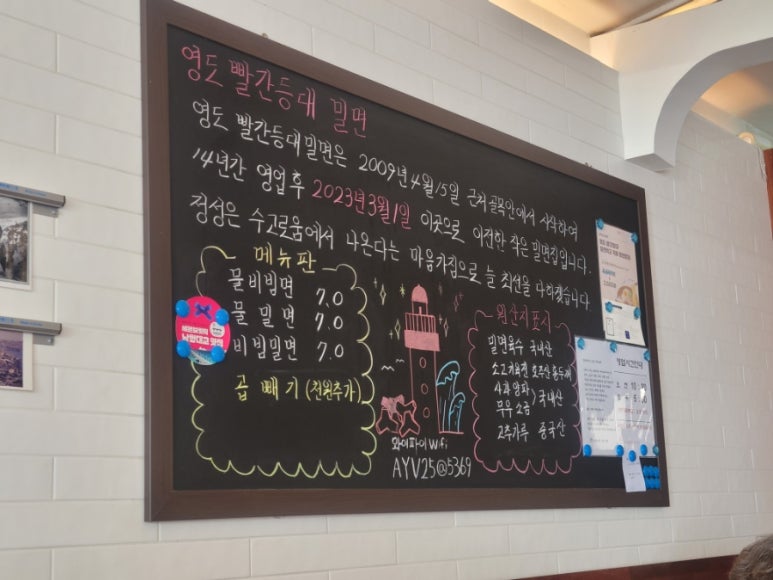 영도 빨간등대 밀면
영도 빨간등대밀면은 2009년 4월 15일 근처 골목안에서 시작하여
14년간 영업후 2023년 3월 1일 이곳으로 이전한 작은 밀면집입니다.
정성은 수고로움에서 나온다는 마음가짐으로 늘 최선을 다하겠습니다
메뉴판
물비빔면 7.0
물밀면 7.0
비빔밀면 7.0
곱빼기 (천원추가)
와이파이 Wifi
AYV25@5369
원산지표시
밀면육수 국내산
소고기육전 호주산
사과 양파
무우 소금 ) 국내산
고추가루 중국산
영업시간안내